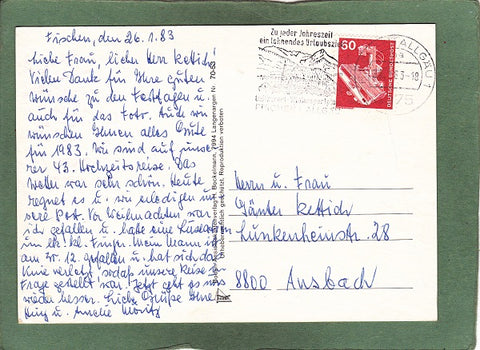 Fischen, den 26.1.83
Liebe Frau, lieber Herr Kettich!
Vielen Dank für Ihre guten
Wünsche zu den Festtagen u.
auch für das Foto. Auch wir
wünschen Ihnen alles Gute
für 1983. Wir sind auf unse-
rer 43. Hochzeitsreise. Das
Wetter war sehr schön. Heute
regnet es u. wir erledigen un-
sere Post. Vor Weihnachten war
ich gefallen u. hatte eine
im kl. Finger. Mein Mann ist
am 12. gefallen u. hat sich das
Knie verletzt sodaß unsere Reise in
Frage gestellt war. Jetzt geht es uns
wieder besser. Liebe Grüße Ihre
Hug u. Amelie Moritz
70-63
7994 Langenargen Nr.
Reproduktion verboten
Zu jeder Jahreszeit
ein lohnendes Urlaubsziel
60
DEUTSCHE BUNDESPOST
ALLGÄU 1
Herrn u. Frau
Günter Kettich
Lunkenheinstr. 28
8800 Ansbach